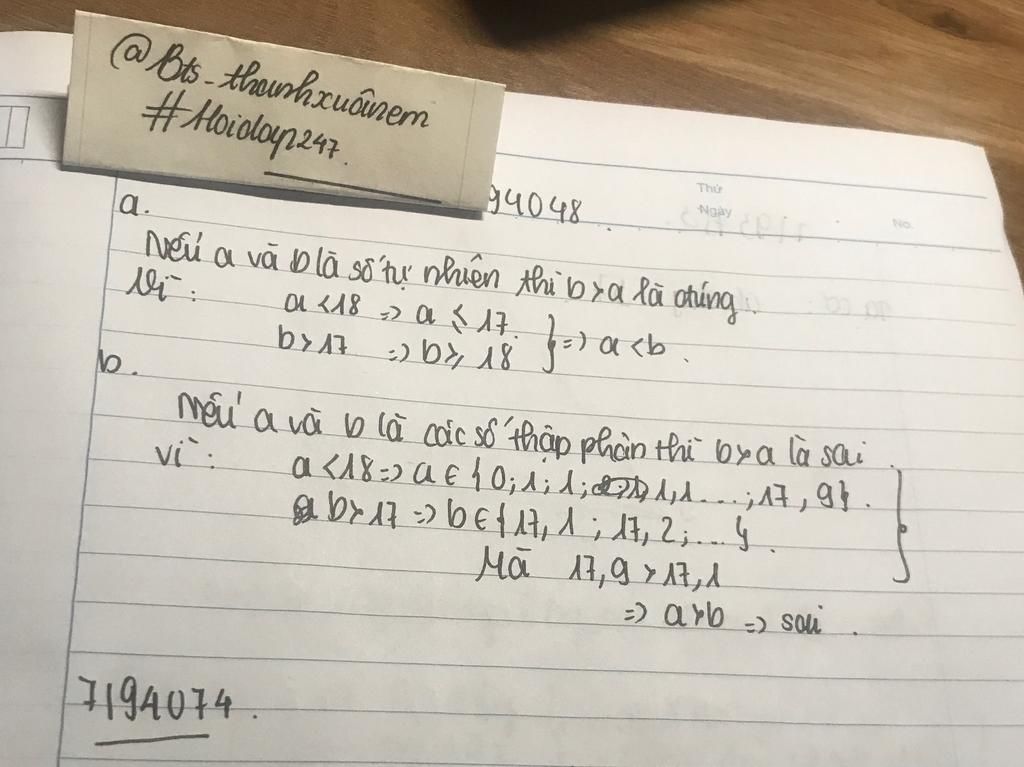 @Bts_thanhxuânem
#Hoidap247.
94048
Thứ
Ngày
No.
a.
Nếu a và b là số tự nhiên thì b>a là đúng.
Vì: a<18 => a ≤ 17.
b>17 => b ≥ 18 } => a<b.
b.
Nếu a và b là các số thập phân thì b>a là sai.
vì: a<18 => a ∈ {0; 1; 1; 1,1 ....; 17,9}.
b>17 => b ∈ {17,1; 17,2;...}. }
Mà 17,9 > 17,1
=> a>b => sai.
7194074.